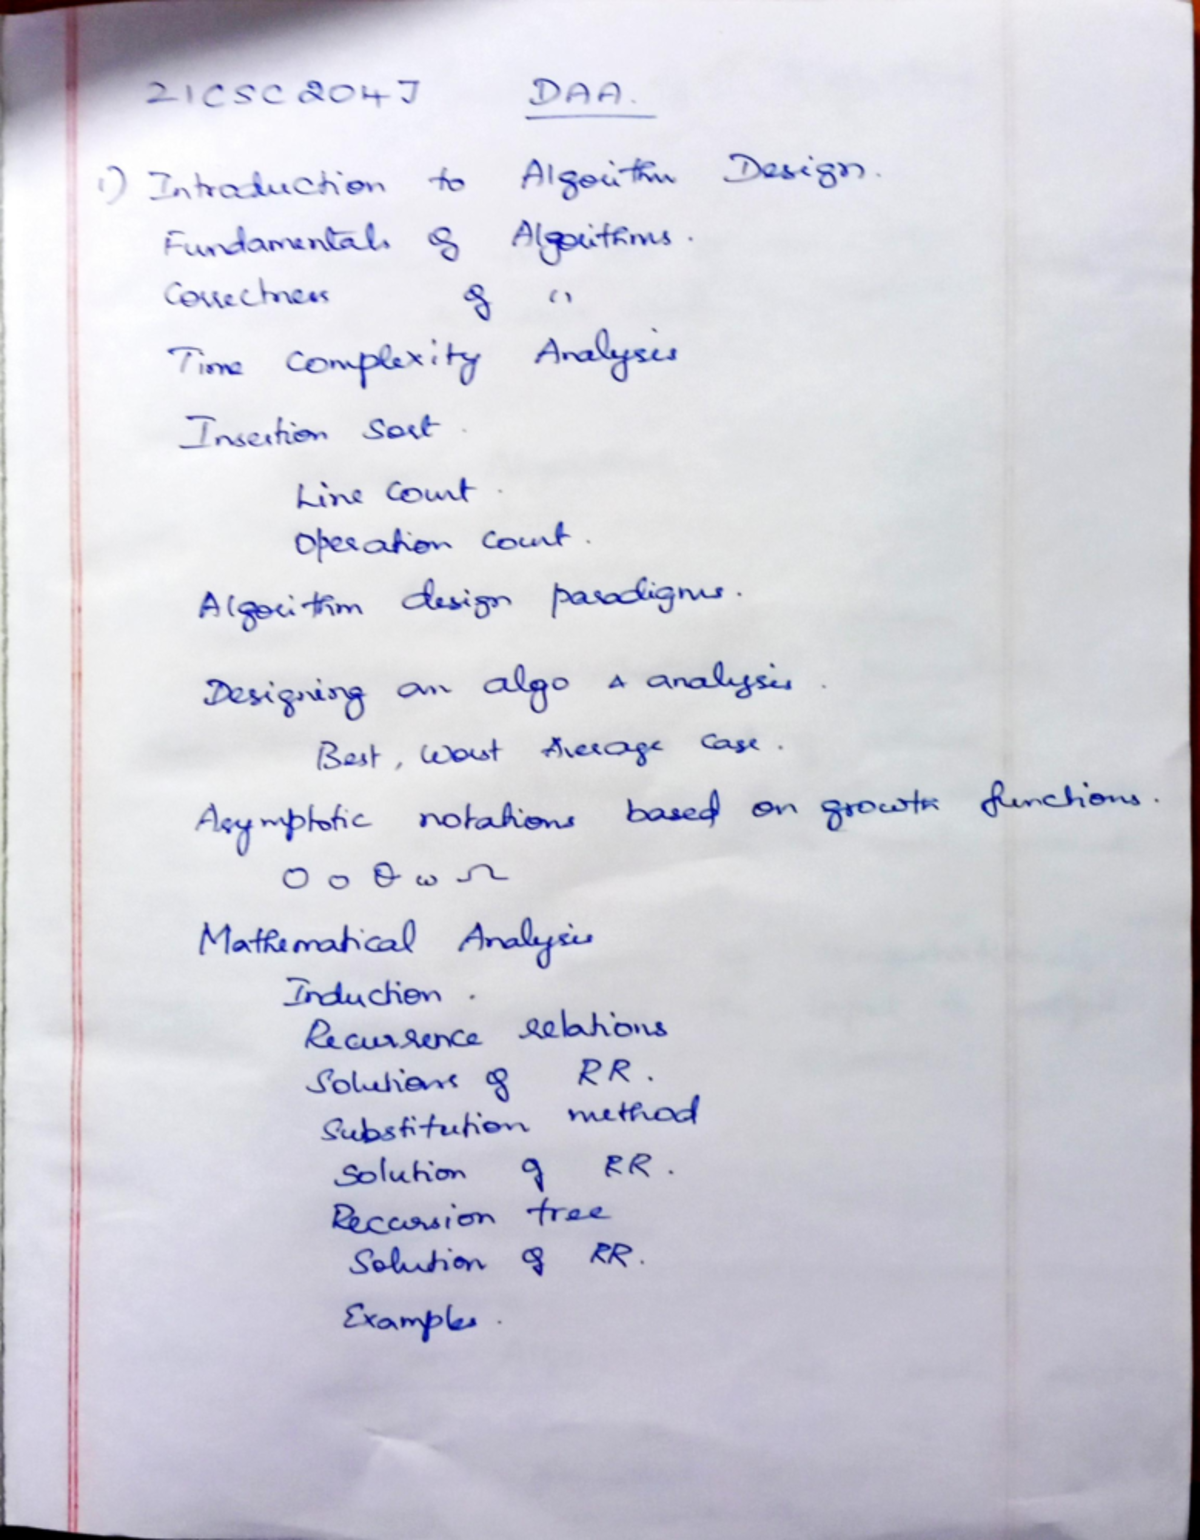 21CSC204J DAA.
1) Introduction to Algorithm Design.
Fundamentals of Algorithms.
Correctness of "
Time Complexity Analysis
Insertion Sort.
Line Count.
Operation Count.
Algorithm design paradigms.
Designing an algo & analysis.
Best, Worst Average Case.
Asymptotic notations based on growth functions.
O o θ ω Ω
Mathematical Analysis
Induction.
Recurrence relations
Solutions of RR.
Substitution method
Solution of RR.
Recursion tree
Solution of RR.
Examples.